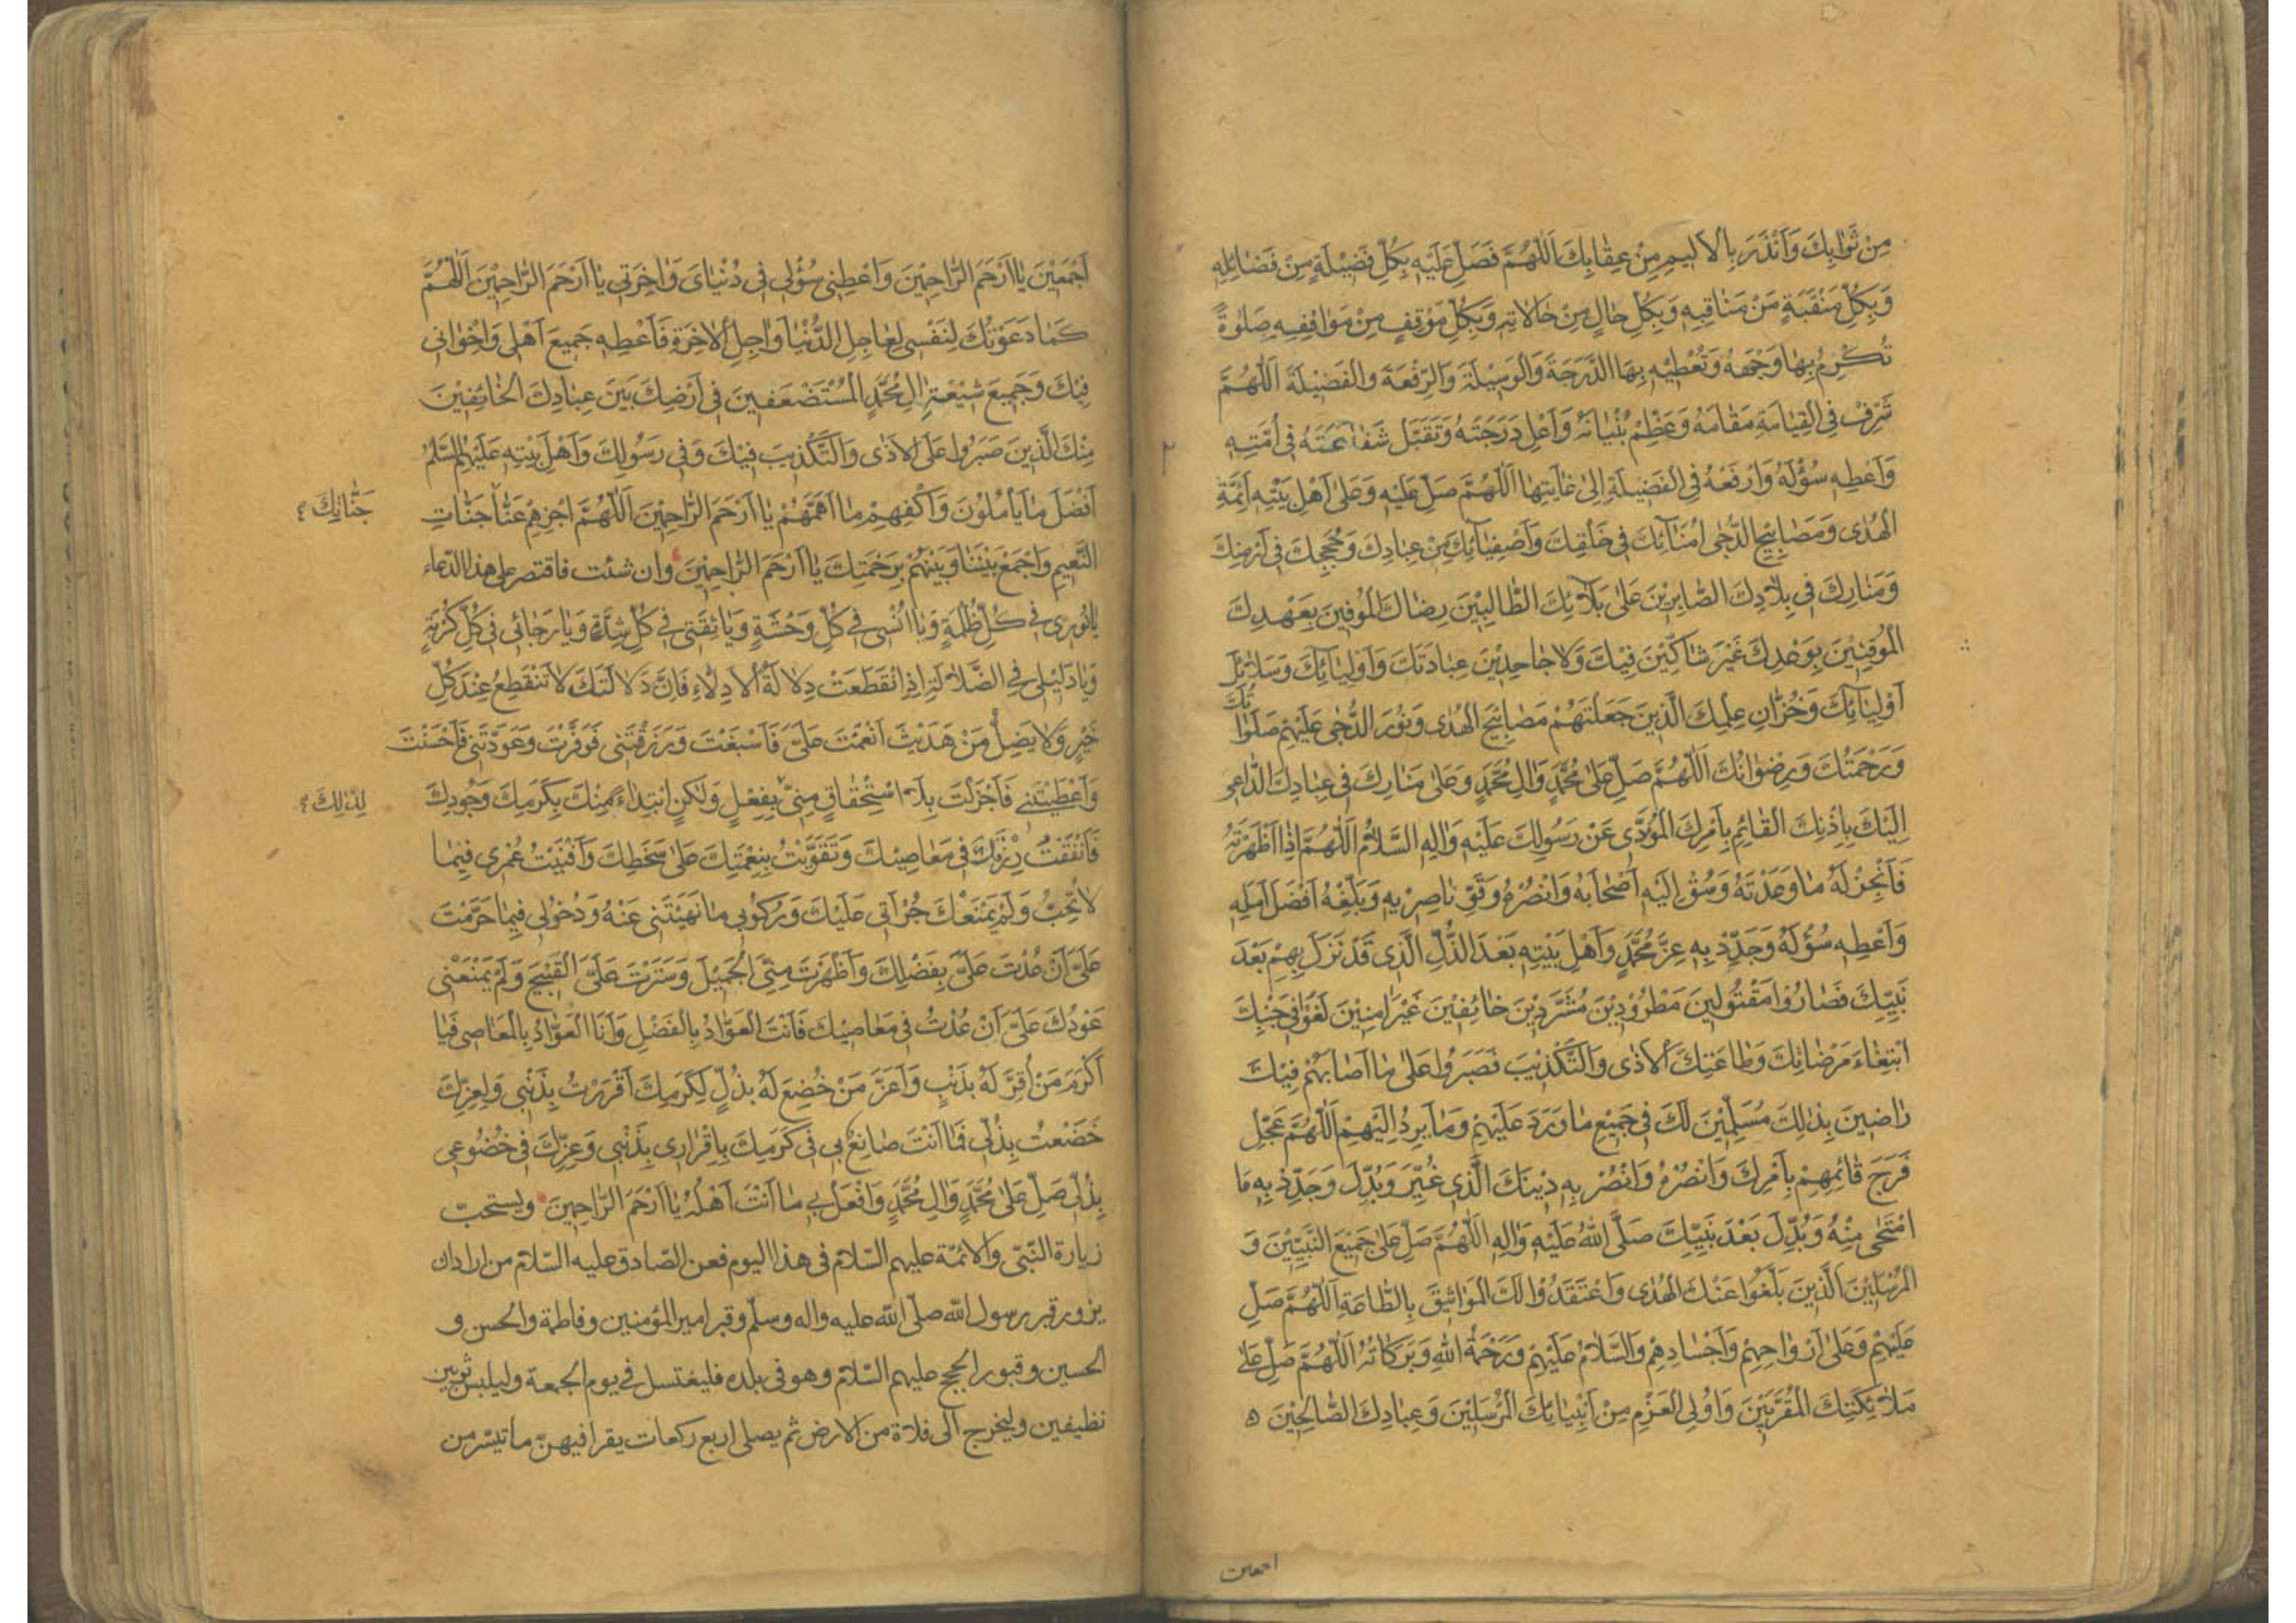 مِنْ ثَوَابِكَ وَاَنْذَرَ بِالْاَلِيمِ مِنْ عِقَابِكَ اَللّٰهُمَّ فَصَلِّ عَلَيْهِ بِكُلِّ فَضِيْلَةٍ مِنْ فَضَائِلِهِ
وَبِكُلِّ مَنْقَبَةٍ مَنْ مَنَاقِبِهِ وَبِكُلِّ حَالٍ مِنْ حَالَاتِهِ وَبِكُلِّ مَوْقِفٍ مِنْ مَوَاقِفِهِ صَلٰوةً
تُكْرِمُ بِهَا وَجْهَهُ وَتُعْطِيْهِ بِهَا الدَّرَجَةَ وَالْوَسِيْلَةَ وَالرِّفْعَةَ وَالْفَضِيْلَةَ اَللّٰهُمَّ
شَرِّفْ فِي الْقِيَامَةِ مَقَامَهُ وَعَظِّمْ بُنْيَانَهُ وَاَعْلِ دَرَجَتَهُ وَتَقَبَّلْ شَفَاعَتَهُ فِي اُمَّتِهِ
وَاَعْطِهِ سُؤْلَهُ وَارْفَعْهُ فِي الْفَضِيْلَةِ اِلٰى غَايَتِهَا اَللّٰهُمَّ صَلِّ عَلَيْهِ وَعَلٰى اَهْلِ بَيْتِهِ اَئِمَّةِ
الْهُدٰى وَمَصَابِيْحِ الدُّجٰى اُمَنَآئِكَ فِي خَلْقِكَ وَاَصْفِيَآئِكَ مِنْ عِبَادِكَ وَحُجَجِكَ فِي اَرْضِكَ
وَمَنَارِكَ فِي بِلَادِكَ الصَّابِرِيْنَ عَلٰى بَلَآئِكَ الطَّالِبِيْنَ رِضَاكَ الْمُوْفِيْنَ بِعَهْدِكَ
الْمُوقِنِيْنَ بِوَعْدِكَ غَيْرَ شَاكِّيْنَ فِيْكَ وَلَا جَاحِدِيْنَ عِبَادَتَكَ وَاَوْلِيَآئِكَ وَسَلَائِلِ
اَوْلِيَائِكَ وَخُزَّانِ عِلْمِكَ الَّذِينَ جَعَلْتَهُمْ مَصَابِيْحَ الْهُدٰى وَنُورَ الدُّجٰى عَلَيْهِمْ صَلَوَاتُكَ
وَرَحْمَتُكَ وَرِضْوَانُكَ اَللّٰهُمَّ صَلِّ عَلٰى مُحَمَّدٍ وَاٰلِ مُحَمَّدٍ وَعَلٰى مَنَارِكَ فِي عِبَادِكَ الدَّاعِي
اِلَيْكَ بِاِذْنِكَ الْقَائِمِ بِاَمْرِكَ الْمُؤَدِّي عَنْ رَسُولِكَ عَلَيْهِ وَاٰلِهِ السَّلَامُ اَللّٰهُمَّ اِذَا اَظْهَرْتَهُ
فَاَنْجِزْ لَهُ مَا وَعَدْتَهُ وَسُقْ اِلَيْهِ اَصْحَابَهُ وَانْصُرْهُ وَقَوِّ نَاصِرِيْهِ وَبَلِّغْهُ اَفْضَلَ اَمَلِهِ
وَاَعْطِهِ سُؤْلَهُ وَجَدِّدْ بِهِ عِزَّ مُحَمَّدٍ وَاَهْلِ بَيْتِهِ بَعْدَ الذُّلِّ الَّذِي قَدْ نَزَلَ بِهِمْ بَعْدَ
نَبِيِّكَ فَصَارُوْا مَقْتُولِينَ مَطْرُوْدِيْنَ مُشَرَّدِيْنَ خَائِفِيْنَ غَيْرَ اٰمِنِيْنَ لَقُوْا فِي جَنْبِكَ
ابْتِغَاءَ مَرْضَاتِكَ وَطَاعَتِكَ الْاَذٰى وَالتَّكْذِيْبَ فَصَبَرُوْا عَلٰى مَا اَصَابَهُمْ فِيْكَ
رَاضِينَ بِذٰلِكَ مُسَلِّمِيْنَ لَكَ فِي جَمِيْعِ مَا وَرَدَ عَلَيْهِمْ وَمَا يَرِدُ اِلَيْهِمْ اَللّٰهُمَّ عَجِّلْ
فَرَجَ قَائِمِهِمْ بِاَمْرِكَ وَانْصُرْهُ وَانْصُرْ بِهِ دِيْنَكَ الَّذِي غُيِّرَ وَبُدِّلَ وَجَدِّدْ بِهِ مَا
امْتَحٰى مِنْهُ وَبُدِّلَ بَعْدَ نَبِيِّكَ صَلَّى اللّٰهُ عَلَيْهِ وَاٰلِهِ اَللّٰهُمَّ صَلِّ عَلٰى جَمِيْعِ النَّبِيِّيْنَ وَ
الْمُرْسَلِيْنَ الَّذِيْنَ بَلَّغُوا عَنْكَ الْهُدٰى وَاعْتَقَدُوْا لَكَ الْمَوَاثِيْقَ بِالطَّاعَةِ اَللّٰهُمَّ صَلِّ
عَلَيْهِمْ وَعَلٰى اَرْوَاحِهِمْ وَاَجْسَادِهِمْ وَالسَّلَامُ عَلَيْهِمْ وَرَحْمَةُ اللّٰهِ وَبَرَكَاتُهُ اَللّٰهُمَّ صَلِّ عَلٰى
مَلَائِكَتِكَ الْمُقَرَّبِيْنَ وَاُوْلِي الْعَزْمِ مِنْ اَنْبِيَائِكَ الْمُرْسَلِيْنَ وَعِبَادِكَ الصَّالِحِيْنَ
اجمعين
اَجْمَعِيْنَ يَا اَرْحَمَ الرَّاحِمِيْنَ وَاَعْطِنِي سُؤْلِي فِي دُنْيَايَ وَاٰخِرَتِي يَا اَرْحَمَ الرَّاحِمِيْنَ اَللّٰهُمَّ
كَمَا دَعَوْتُكَ لِنَفْسِي لِعَاجِلِ الدُّنْيَا وَاٰجِلِ الْاٰخِرَةِ فَاَعْطِهِ جَمِيْعَ اَهْلِي وَاِخْوَانِي
فِيْكَ وَجَمِيْعَ شِيْعَةِ اٰلِ مُحَمَّدٍ الْمُسْتَضْعَفِينَ فِي اَرْضِكَ بَيْنَ عِبَادِكَ الْخَائِفِيْنَ
مِنْكَ الَّذِينَ صَبَرُوا عَلَى الْاَذٰى وَالتَّكْذِيبَ فِيْكَ وَفِي رَسُولِكَ وَاَهْلِ بَيْتِهِ عَلَيْهِمُ السَّلٰمُ
اَفْضَلَ مَا يَاْمُلُوْنَ وَاَكْفِهِمْ مَا اَهَمَّهُمْ يَا اَرْحَمَ الرَّاحِمِيْنَ اَللّٰهُمَّ اجْزِهِمْ عَنَّا جَنَّاتِ
جَنَّاتِكَ
النَّعِيمِ وَاجْمَعْ بَيْنَنَا وَبَيْنَهُمْ بِرَحْمَتِكَ يَا اَرْحَمَ الرَّاحِمِيْنَ وان شئت فاقتصر على هذا الدّعاء
يَا نُورِي فِي كُلِّ ظُلْمَةٍ وَيَا اُنْسِي فِي كُلِّ وَحْشَةٍ وَيَا ثِقَتِي فِي كُلِّ شِدَّةٍ وَيَا رَجَائِي فِي كُلِّ كُرْبَةٍ
وَيَا دَلِيْلِي فِي الضَّلَالَةِ اِذَا انْقَطَعَتْ دِلَالَةُ الْاَدِلَّاءِ فَاِنَّ دَلَالَتَكَ لَا تَنْقَطِعُ عِنْدَ كُلِّ
خَيْرٍ وَلَا يَضِلُّ مَنْ هَدَيْتَ اَنْعَمْتَ عَلَيَّ فَاَسْبَغْتَ وَرَزَقْتَنِي فَوَفَّرْتَ وَعَوَّدْتَنِي فَاَحْسَنْتَ
وَاَعْطَيْتَنِي فَاَجْزَلْتَ بِلَا اسْتِحْقَاقٍ مِنِّي بِفِعْلٍ وَلٰكِنِ ابْتِدَاءً مِنْكَ بِكَرَمِكَ وَجُودِكَ
لِذٰلِكَ
فَاَنْفَقْتُ رِزْقَكَ فِي مَعَاصِيْكَ وَتَقَوَّيْتُ بِنِعْمَتِكَ عَلٰى سَخَطِكَ وَاَفْنَيْتُ عُمْرِي فِيْمَا
لَا تُحِبُّ وَلَمْ يَمْنَعْكَ جُرْاَتِي عَلَيْكَ وَرُكُوبِي مَا نَهَيْتَنِي عَنْهُ وَدُخُولِي فِيمَا حَرَّمْتَ
عَلَيَّ اَنْ عُدْتَ عَلَيَّ بِفَضْلِكَ وَاَظْهَرْتَ مِنِّي الْجَمِيْلَ وَسَتَرْتَ عَلَيَّ الْقَبِيْحَ وَلَمْ يَمْنَعْنِي
عَوْدُكَ عَلَيَّ اَنْ عُدْتُ فِي مَعَاصِيْكَ فَاَنْتَ الْعَوَّادُ بِالْفَضْلِ وَاَنَا الْعَوَّادُ بِالْمَعَاصِي فَيَا
اَكْرَمَ مَنْ اُقِرَّ لَهُ بِذَنْبٍ وَاَعَزَّ مَنْ خُضِعَ لَهُ بِذُلٍّ لِكَرَمِكَ اَقْرَرْتُ بِذَنْبِي وَلِعِزِّكَ
خَضَعْتُ بِذُلِّي فَمَا اَنْتَ صَانِعٌ بِي فِي كَرَمِكَ بِاِقْرَارِي بِذَنْبِي وَعِزِّكَ فِي خُضُوعِي
بِذُلِّي صَلِّ عَلٰى مُحَمَّدٍ وَاٰلِ مُحَمَّدٍ وَافْعَلْ بِي مَا اَنْتَ اَهْلُهُ يَا اَرْحَمَ الرَّاحِمِينَ ويستحبّ
زيارة النّبيّ والائمّة عليهم السّلام في هذا اليوم فعن الصّادق عليه السّلام من اراد ان
يزور قبر رسول الله صلّى الله عليه واله وسلّم وقبر امير المؤمنين وفاطمة والحسن و
الحسين وقبور الحجج عليهم السّلام وهو في بلده فليغتسل في يوم الجمعة وليلبس ثوبين
نظيفين وليخرج الى فلاة من الارض ثم يصلي اربع ركعات يقرا فيهنّ ما تيسّر من